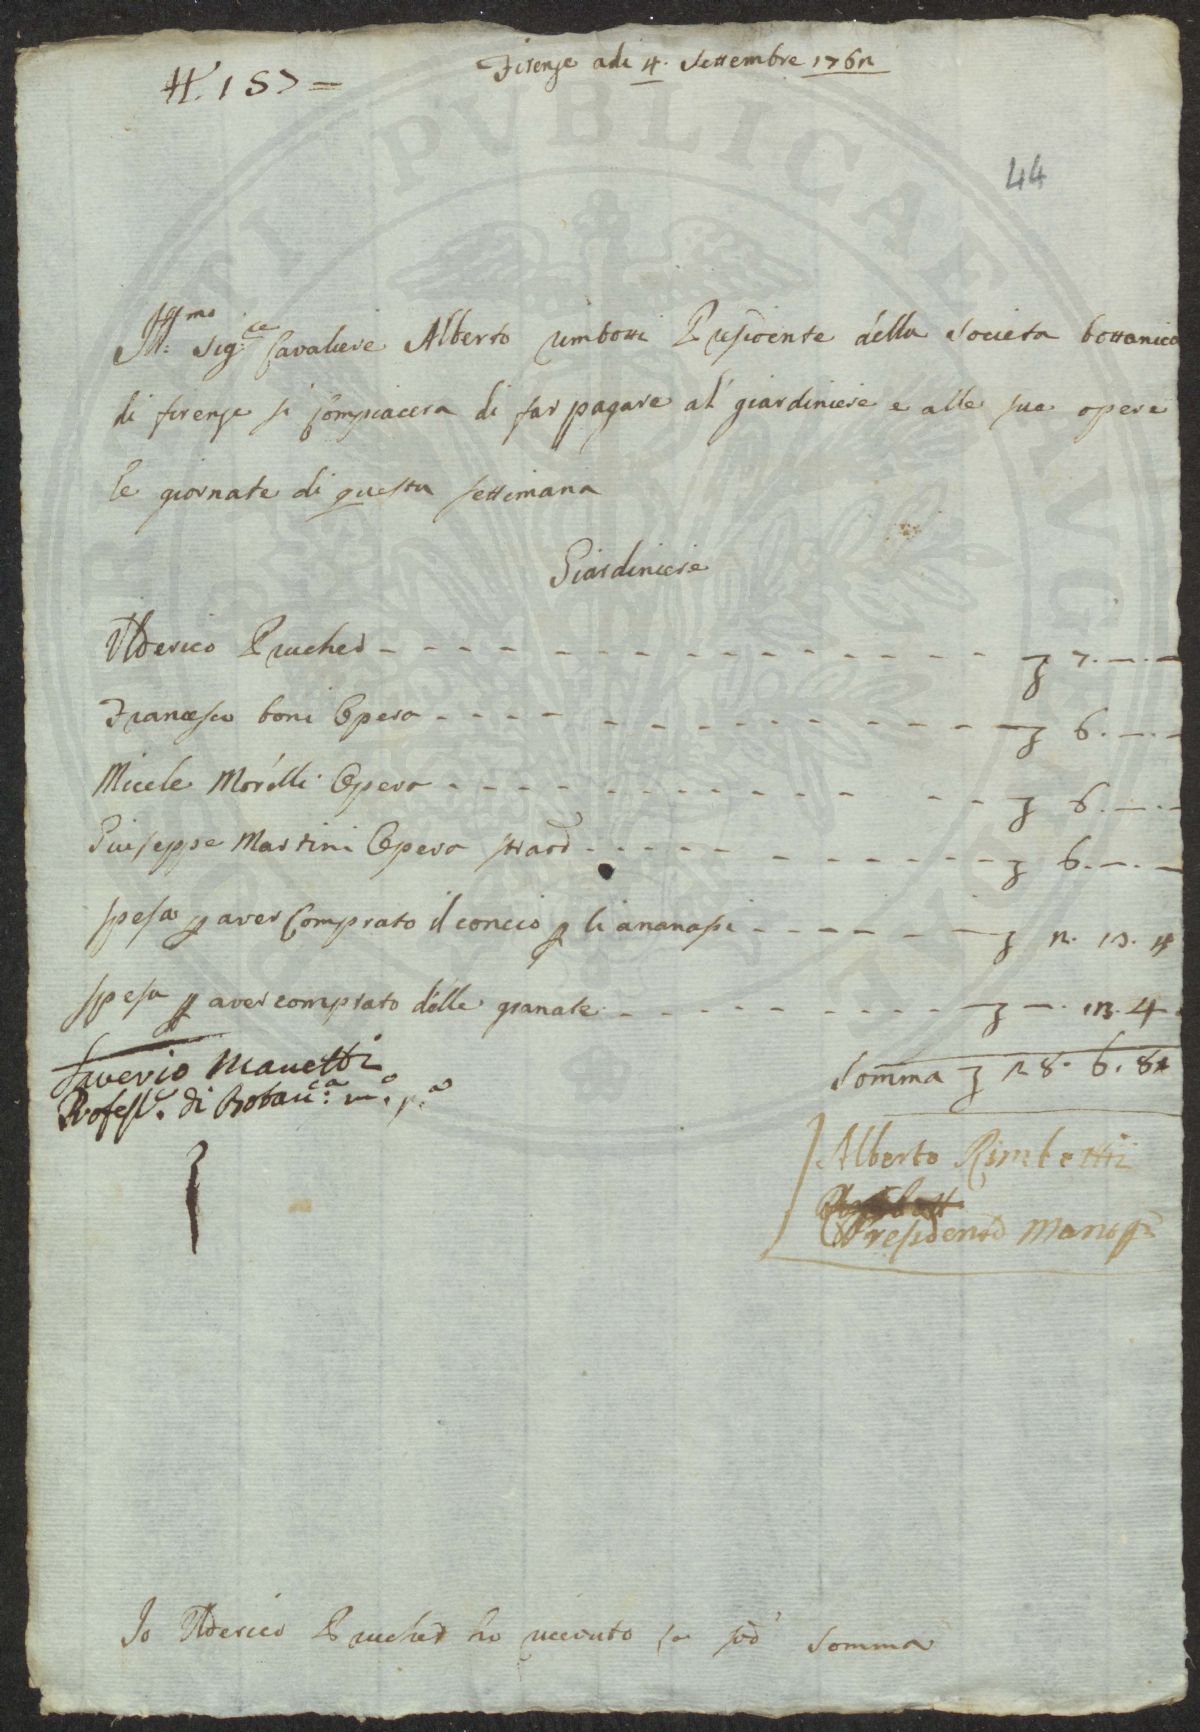 N. 157 =
Firenze adi 4. Settembre 1762
44
Ill.mo Sig.re Cavaliere Alberto rimbotti Presidente della Societa bottanica
di firenze si Compiacera di far pagare al giardiniere e alle sue opere
le giornate di questa settimana
Giardiniere
Ulderico Prucher - - - - - - - - - - - - - - - - £ 7. —. —
Francesco boni Opera - - - - - - - - - - - - - - £ 6. —. —
Micele Morelli Opera - - - - - - - - - - - - - - £ 6. —. —
Giuseppe Martini Opera straord - - - - - - - - - £ 6. —. —
spesa p aver Comprato il concio p li ananassi - - - - - - £ 2. 13. 4
spesa p aver comprato delle granate - - - - - - - - £ —. 13. 4.
Somma £ 28. 6. 8
Saverio Manetti
Profess.e di Botan.ca m.o p.a
Alberto Rimbotti
Presidente Mano pp
Io Ulderico Prucher ho riceuto la sud Somma